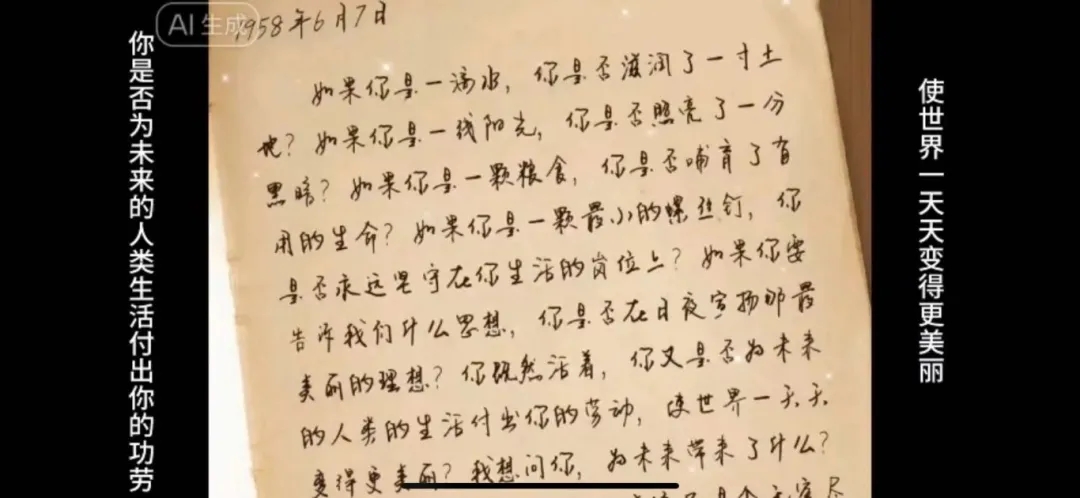 AI生成
1958年6月7日
如果你是一滴水，你是否滋润了一寸土
地？如果你是一线阳光，你是否照亮了一分
黑暗？如果你是一颗粮食，你是否哺育了有
用的生命？如果你是一颗最小的螺丝钉，你
是否永远坚守在你生活的岗位上？如果你要
告诉我们什么思想，你是否在日夜宣扬那最
美丽的理想？你既然活着，你又是否为未来
的人类的生活付出你的劳动，使世界一天天
变得更美丽？我想问你，为未来带来了什么？
你是否为未来的人类生活付出你的功劳
使世界一天天变得更美丽